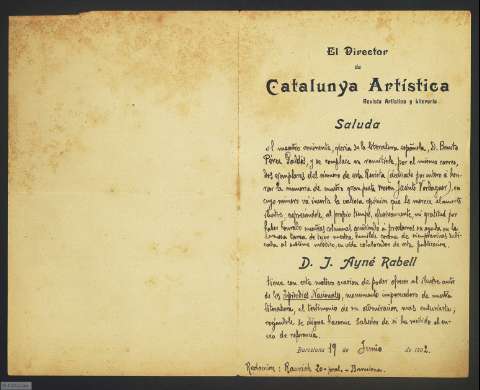 El Director
de
Catalunya Artística
Revista Artística y Literaria
Saluda
Al maestro eminente, gloria de la literatura española, D. Benito
Pérez Galdós, y se complace en remitirle, por el mismo correo,
dos ejemplares del número de esta Revista (dedicado por entero a hon-
rar la memoria de nuestro gran poeta Mosén Jacinto Verdaguer), en
cuyo número va inserta la valiosa opinión que le merece al maestro
ilustre, expresándole, al propio tiempo, mi gratitud por
haber honrado nuestras columnas
humilde corona de siemprevivas dedi-
cada al sublime místico, en esta publicación.
D. J. Ayné Rabell
tiene con este motivo ocasión de poder ofrecer al ilustre autor
de los Episodios Nacionales, monumento imperecedero de nuestra
literatura, el testimonio de su admiración más entusiasta,
rogándole se digne hacerme sabedor de si ha recibido el en-
vío de referencia.
Barcelona 19 de Junio de 1902.
Redacción: Barcelona.